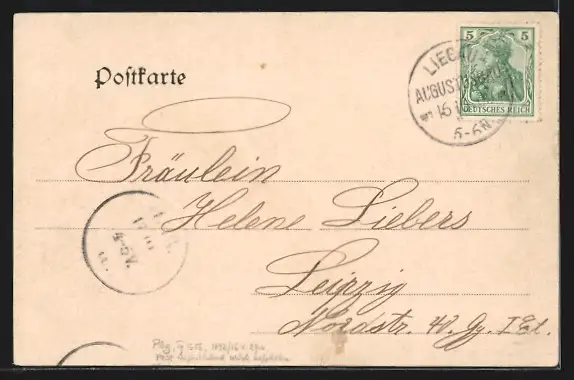 Postkarte
5 5
DEUTSCHES REICH
LIEGAU
AUGUSTUSBAD
5-6N.
Fräulein
Helene Liebers
4-5V.
Leipzig
Nordstr. 40. Gg. I Et.